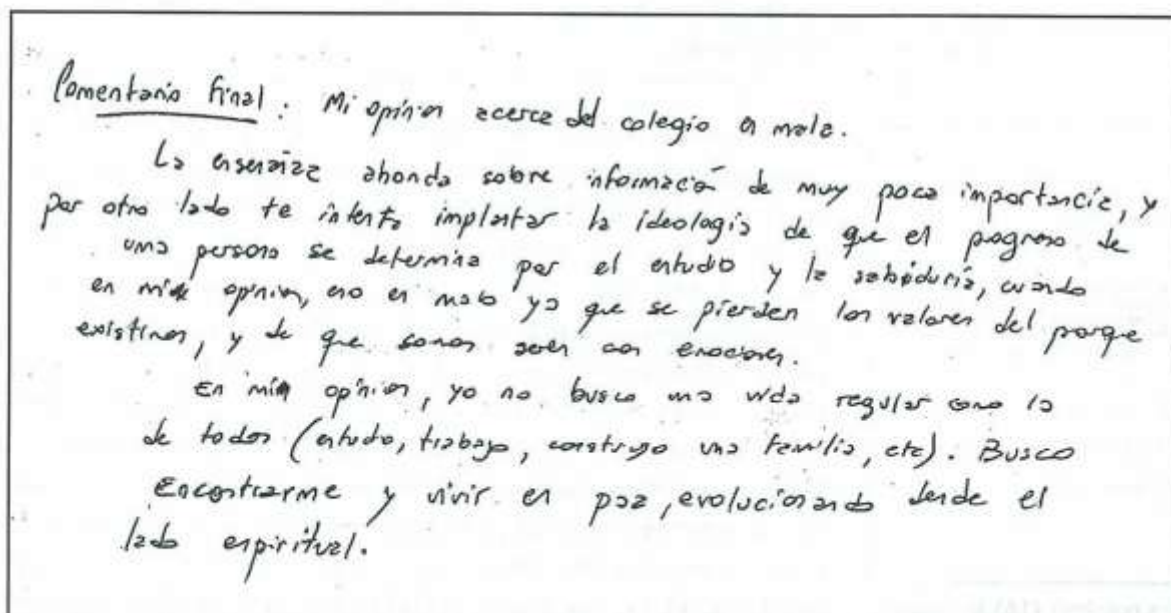 Comentario final. Mi opinion acerca del colegio es mala.
La enseñanza ahonda sobre información de muy poca importancia, y
por otro lado te intenta implantar la ideologia de que el progreso de
una persona se determina por el estudio y la sabiduría, cuando
en mi opinion, eso es malo ya que se pierden los valores del porque
existimos, y de que somos seres con emociones.
En mi opinion, yo no busco una vida regular como la
de todos (estudio, trabajo, construyo una familia, etc). Busco
Encontrarme y vivir en paz, evolucionando desde el
lado espiritual.